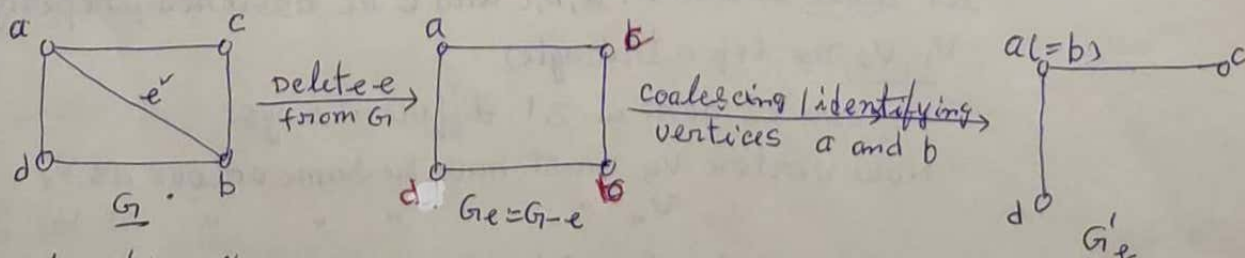 a c
e
d b
G
Delete e
from G
a
d
Ge = G-e
coalescing / identifying
vertices a and b
a(=b) c
d
G'e